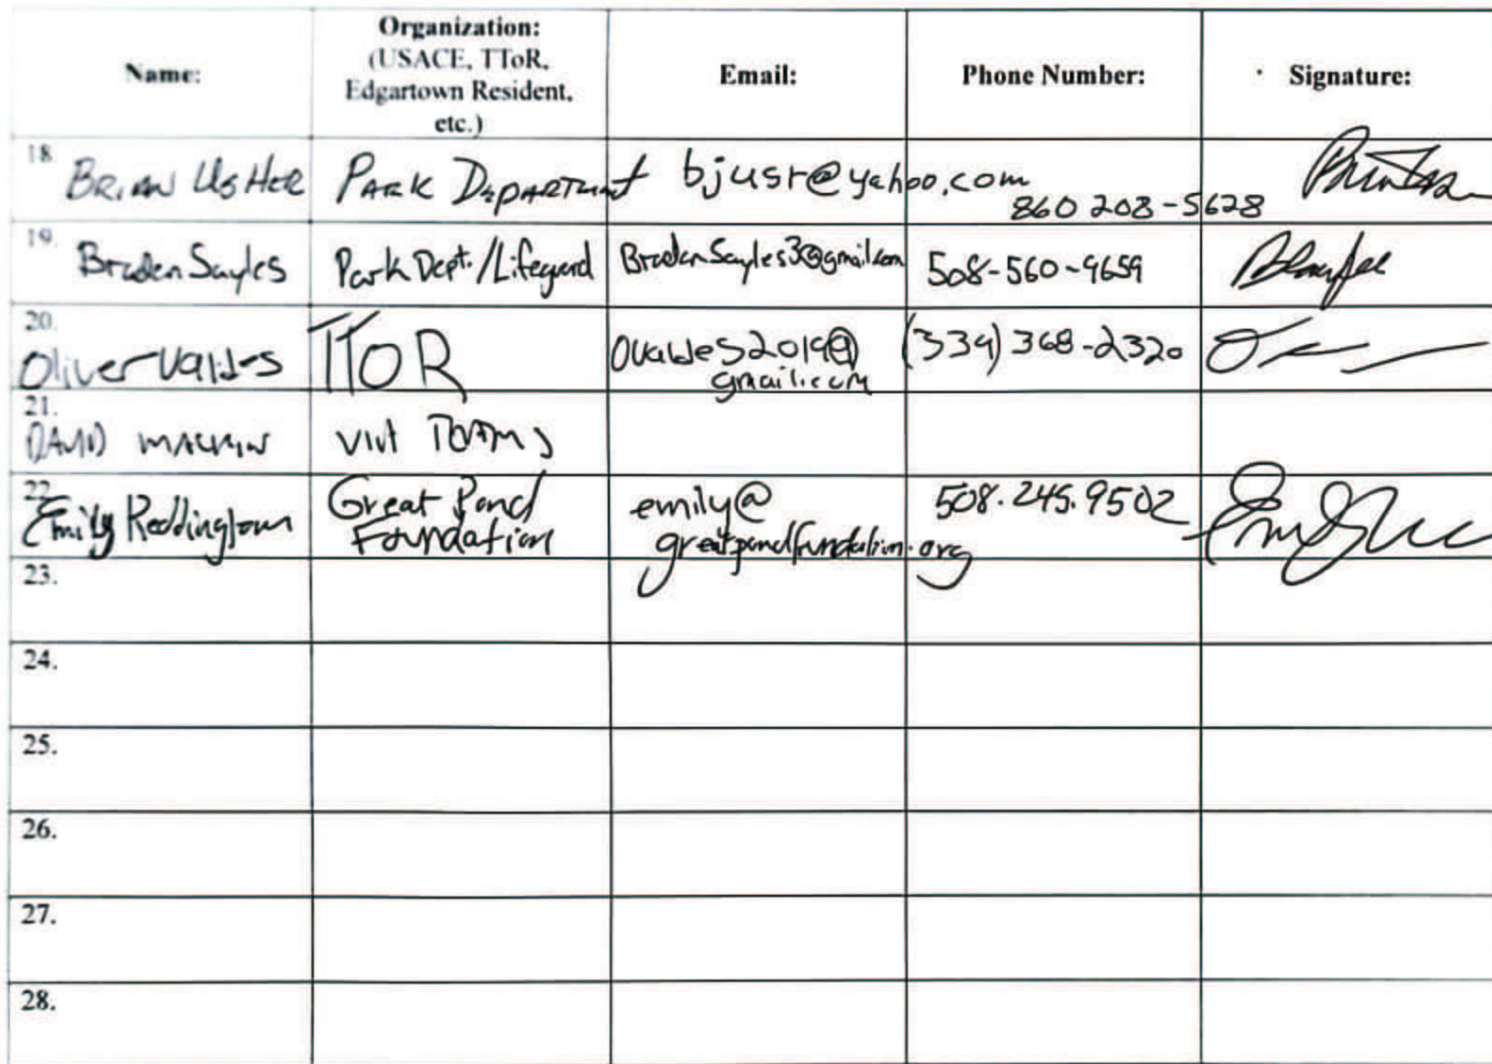 Name:
Organization:
(USACE, TToR,
Edgartown Resident,
etc.)
Email:
Phone Number:
Signature:
18. BRIAN USHER PARK DEPARTMENT bjusr@yahoo.com 860 208-5628
19. Braden Sayles Park Dept./Lifeguard BradenSayles3@gmail.com 508-560-9659
20. Oliver Valdes TTOR Ovaldes2019@ (339) 368-2320
gmail.com
21. DAVID
22. Emily Reddington Great Pond emily@ 508.245.9502
Foundation greatpondfoundation.org
23.
24.
25.
26.
27.
28.